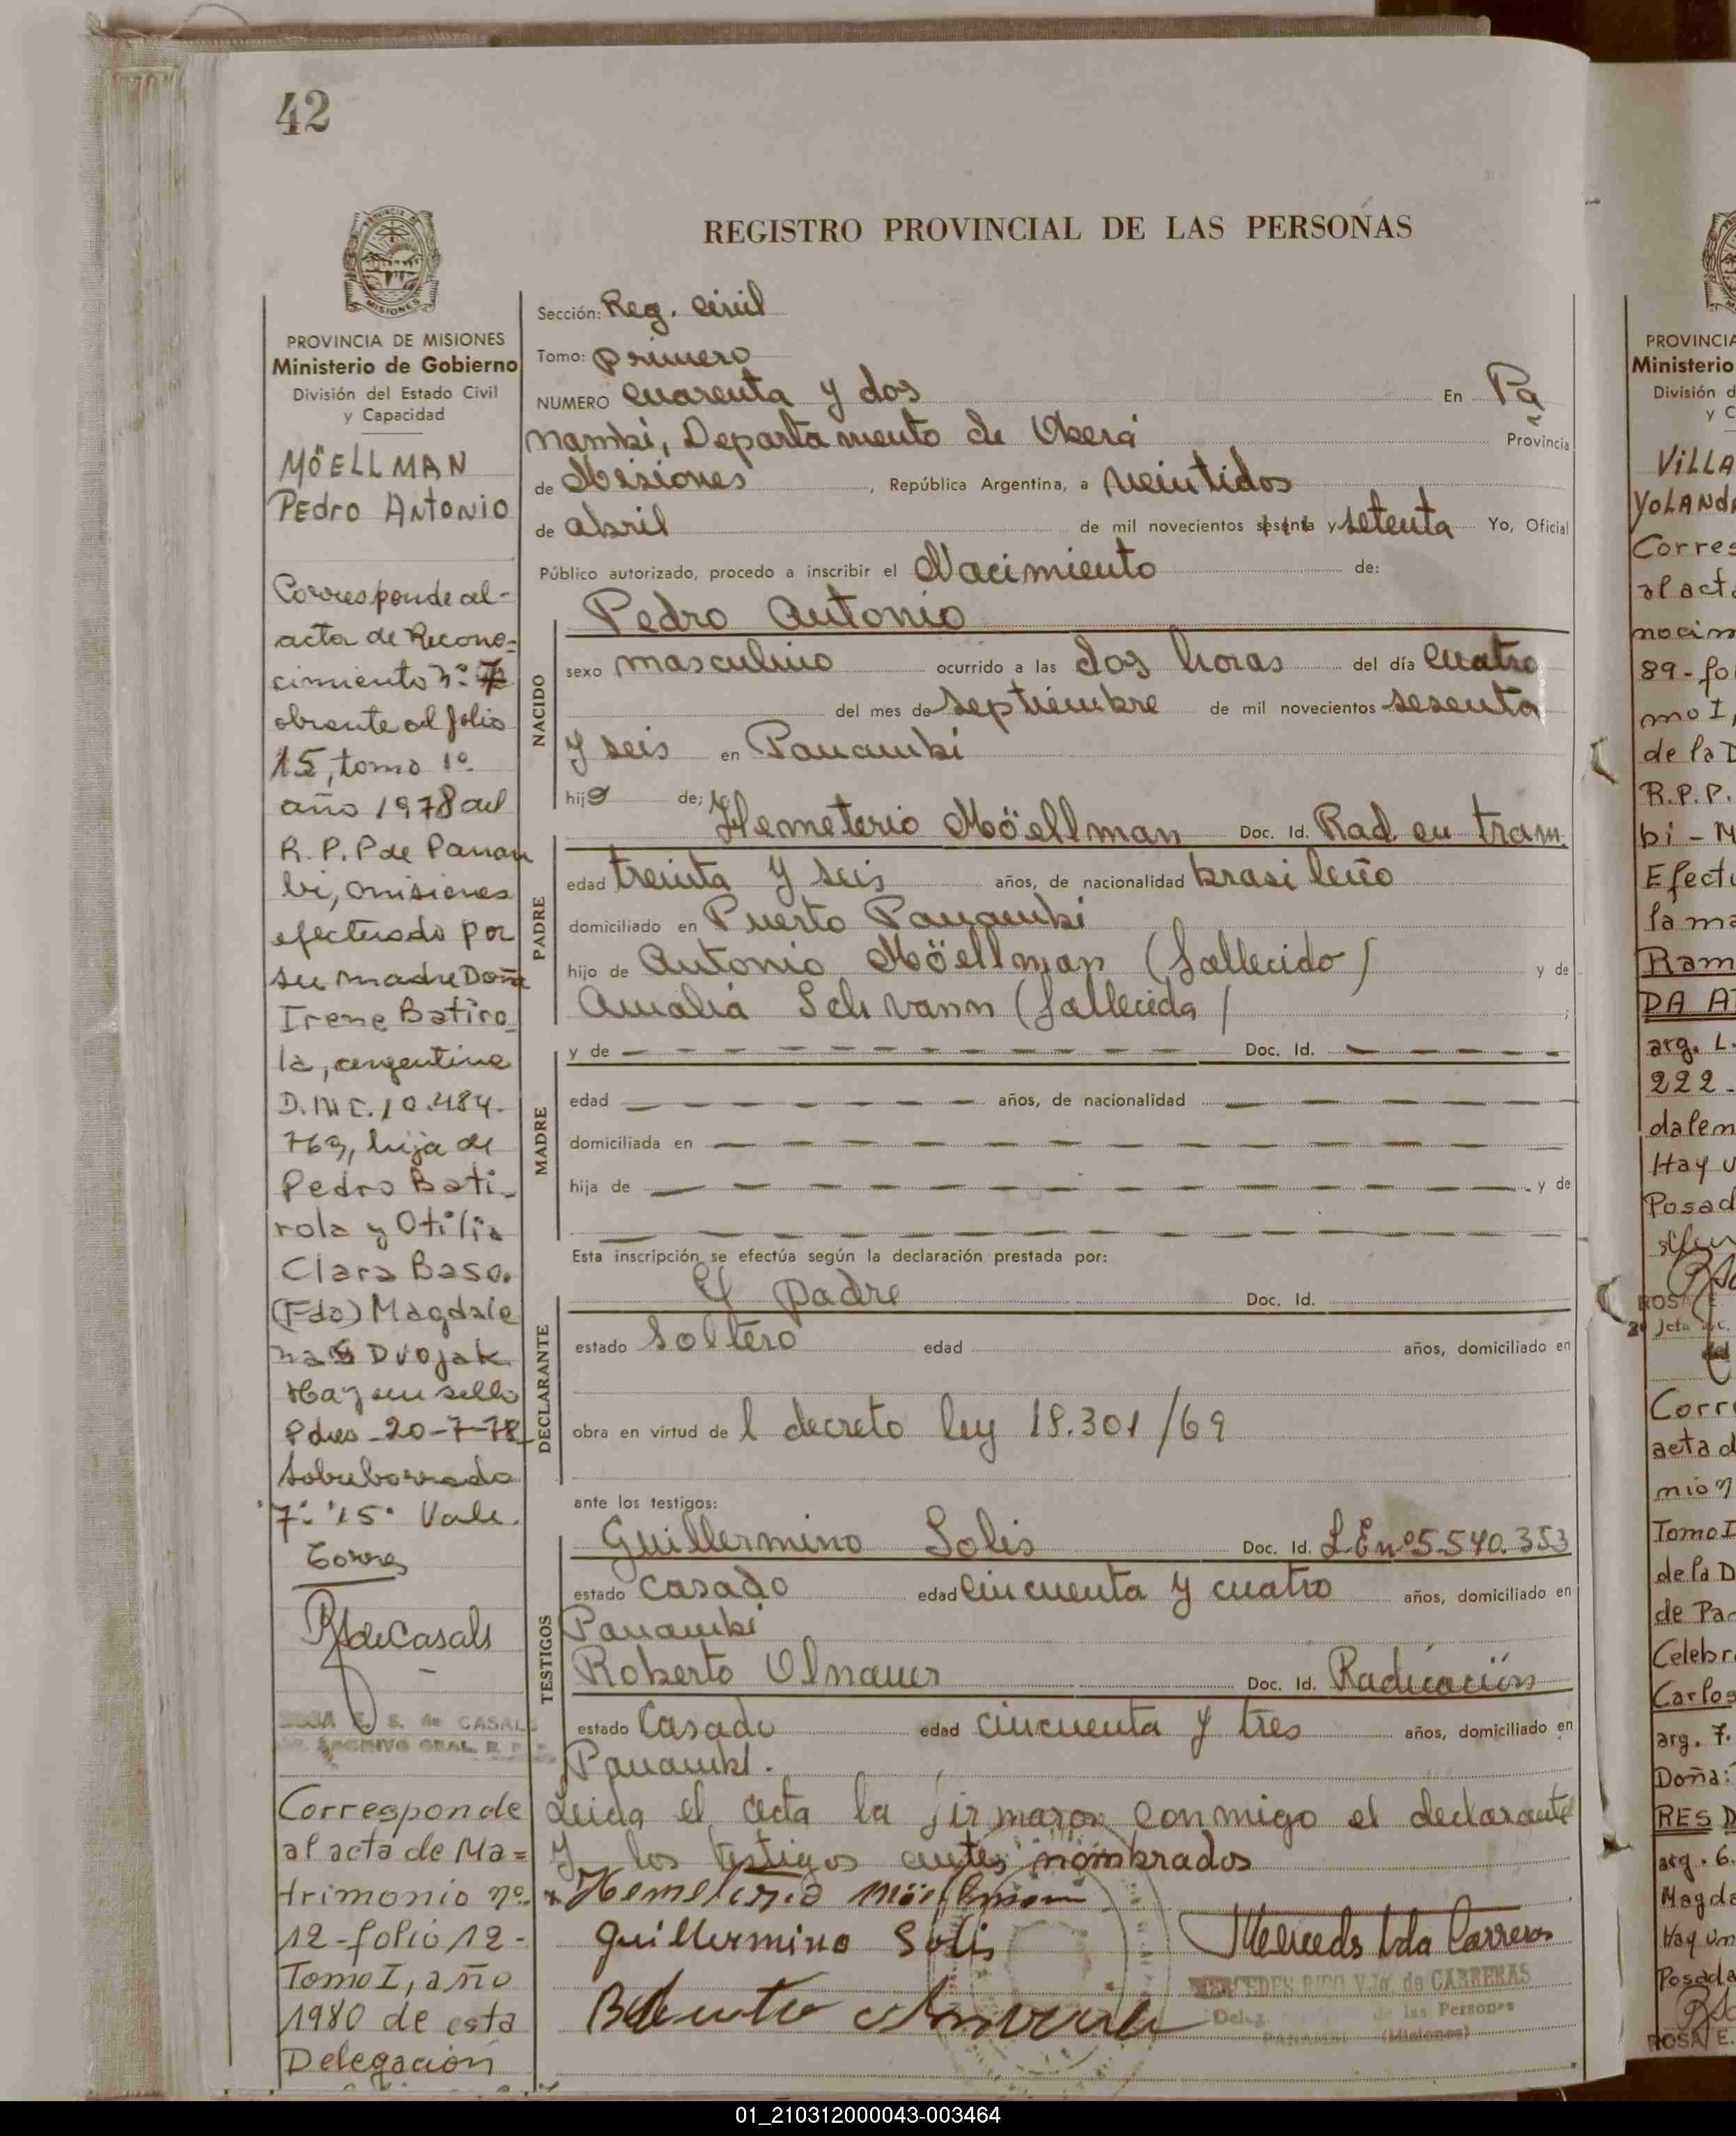 42
REGISTRO PROVINCIAL DE LAS PERSONAS
MISIONES
PROVINCIA DE MISIONES
Ministerio de Gobierno
División del Estado Civil
y Capacidad
MÖELLMAN
PEdro ANtONIO
Corresponde al-
acta de Recono-
cimiento nº 7
obrante al folio
15, tomo 1º
año 1978 del
R.P.P de Panam
bi, misiones
efectuado por
su madre Doña
Irene Batiro
la, argentina
D.N.I. 10.484.
769, hija de
Pedro Bati-
rola y Otilia
Clara Baso.
(Fdo) Magdale
na S Dvojak
Hay un sello
Pdas-20-7-78
Sobreborrado
7- "15" Vale.
Torres
RSdeCasals
ROSA E. S. de CASALS
ARCHIVO GRAL. R P P
Corresponde
al acta de Ma=
trimonio nº
12-folio 12-
Tomo I, año
1980 de esta
Delegación
Sección: Reg. Civil
Tomo: primero
NUMERO cuarenta y dos En Pa
nambi, Departamento de Oberá Provincia
de Misiones, República Argentina, a veintidos
de abril de mil novecientos sesenta y setenta Yo, Oficial
Público autorizado, procedo a inscribir el Nacimiento de:
NACIDO
Pedro Antonio
sexo masculino ocurrido a las dos horas del día cuatro
del mes de septiembre de mil novecientos sesenta
y seis en Panambi
hijo de;
PADRE
Hemeterio Möellman Doc. Id. Rad en tram.
edad treinta y seis años, de nacionalidad brasileño
domiciliado en Puerto Panambi
hijo de Antonio Möellman (fallecido) y de
Amalia Schvann (fallecida) ;
MADRE
y de Doc. Id.
edad años, de nacionalidad
domiciliada en
hija de y de
Esta inscripción se efectúa según la declaración prestada por:
DECLARANTE
El padre Doc. Id.
estado Soltero edad años, domiciliado en
obra en virtud de l decreto ley 18.301/69
ante los testigos:
TESTIGOS
Guillermino Solis Doc. Id. L.E nº 5.540.353
estado casado edad cincuenta y cuatro años, domiciliado en
Panambi
Roberto Olnauer Doc. Id. Radicación
estado Casado edad cincuenta y tres años, domiciliado en
Panambi.
Leida el acta la firmaron conmigo el declarante
y los testigos antes nombrados
Hemeterio Möellman
Guillermino Solis
Mercedes Vda Carreras
MERCEDES RICO Vda. de CARRERAS
de las Personas
PANAMBI (Misiones)
PROVINCIA
Ministerio
División d
y C
VILLA
YOLANdA
Corres
al acta
nocim
89-fo
mo I,
de la D
R.P.P.
bi-M
Efectu
la ma
Ram
DA A
arg. L.
222-
dalen
Hay u
Posad
ROSA E.
Corre
acta d
mio n
Tomo I
de la D
de Pa
Celebr
Carlos
arg. 7.
Doña:
RES D
arg. 6.
Magda
Hay un
Posada
ROSA E.
01_210312000043-003464